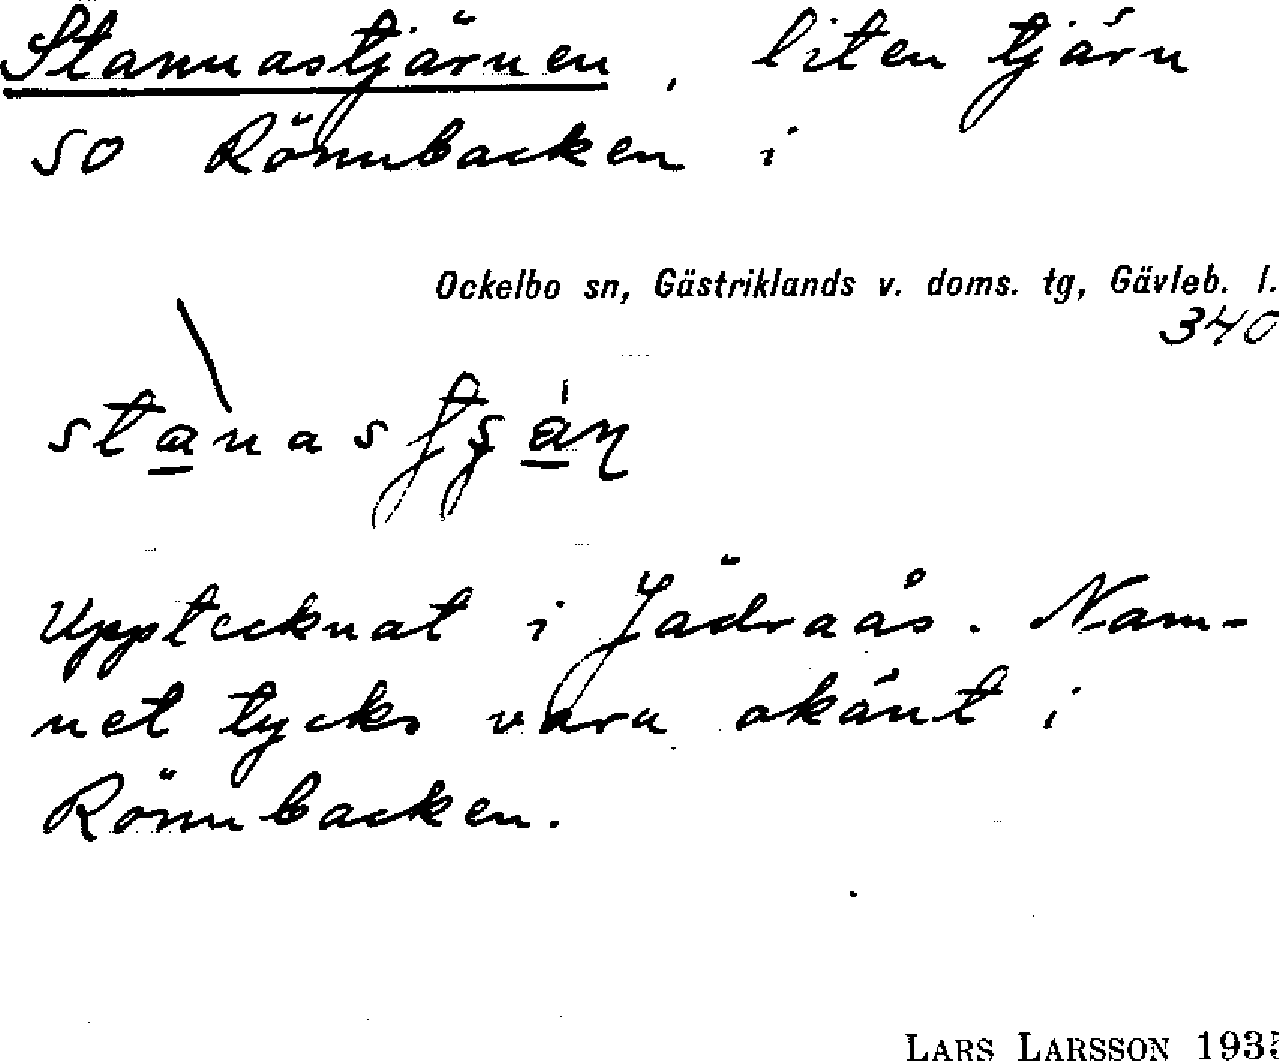 Stannastjärnen, liten tjärn
SO Rönnbacken i
Ockelbo sn, Gästriklands v. doms. tg, Gävleb. l.
340
Upptecknat i Jädraås. Nam-
net tycks vara okänt i
Rönnbacken.
LARS LARSSON